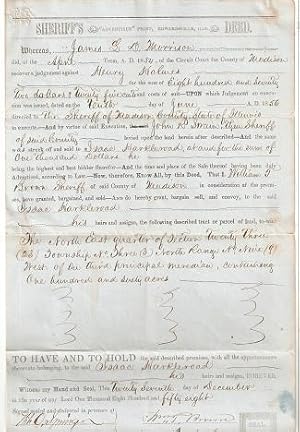 SHERIFF'S DEED.
"ADVERTISER" PRINT, EDWARDSVILLE, ILLS.
Whereas, James L. D. Morrison
did, at the April Term, A. D. 18 of the Circuit Court for the County of Madison
recover a judgment against Henry Holmes
for the sum of Eight hundred and Seventy
two dollars & twenty five cents costs—UPON which Judgment an execu-
tion was issued, dated on the Tenth day of June A. D. 1856
directed to the Sheriff of Madison County State of Illinois
to execute—And by virtue of said Execution, John R. Swain then Sheriff
of said County levied upon the land herein after described
struck off and sold to Isaac Harklerood, at and for the sum of
One thousand Dollars he
being the highest and best bidder therefor—And the time and place of the Sale thereof having been duly
Advertised, according to Law—Now, therefore, Know All, by this Deed, That I William T.
Brown Sheriff of said County of Madison in consideration of the premi-
ses, have granted, bargained, and sold—And do hereby grant, bargain, sell, and convey, to the said
Isaac Harklerood
his heirs and assigns, the following described tract or parcel of land, to-wit:
The North East Quarter of Section Twenty Three
(23) Township No. Three (3) North Range No. Nine (9)
West of the third principal meridian, containing
One hundred and sixty acres
TO HAVE AND TO HOLD the said described premises, with all the appurtenances
thereunto belonging, to the said Isaac Harklerood
his heirs and assigns, FOREVER.
Witness my Hand and Seal, This Twenty Seventh day of December
in the year of my Lord One Thousand Eight Hundred and fifty eight
Signed sealed and delivered in presence of
Wm T Brown
SEAL